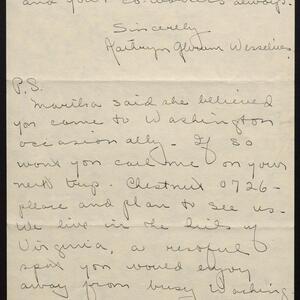 and your co-workers always.
Sincerely
Kathryn Wesselius
P.S.
Martha said she believed
you came to Washington
occasionally - If so
wont you call me on your
next trip. Chestnut 0726-
please and plan to see us-
We live in the hills of
Virginia, a restful
spot you would enjoy
away from busy Washing